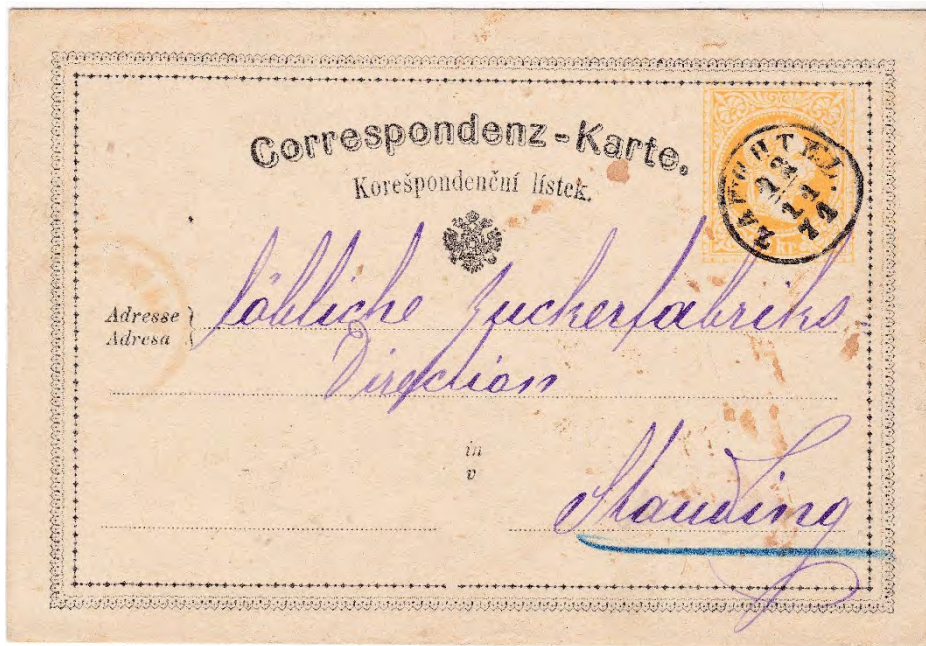 Correspondenz-Karte.
Korešpondenční lístek.
ZAUCHTEL.
22
11
74
kr
Adresse
Adresa
löbliche Zuckerfabriks
Direction
in
v
Stauding